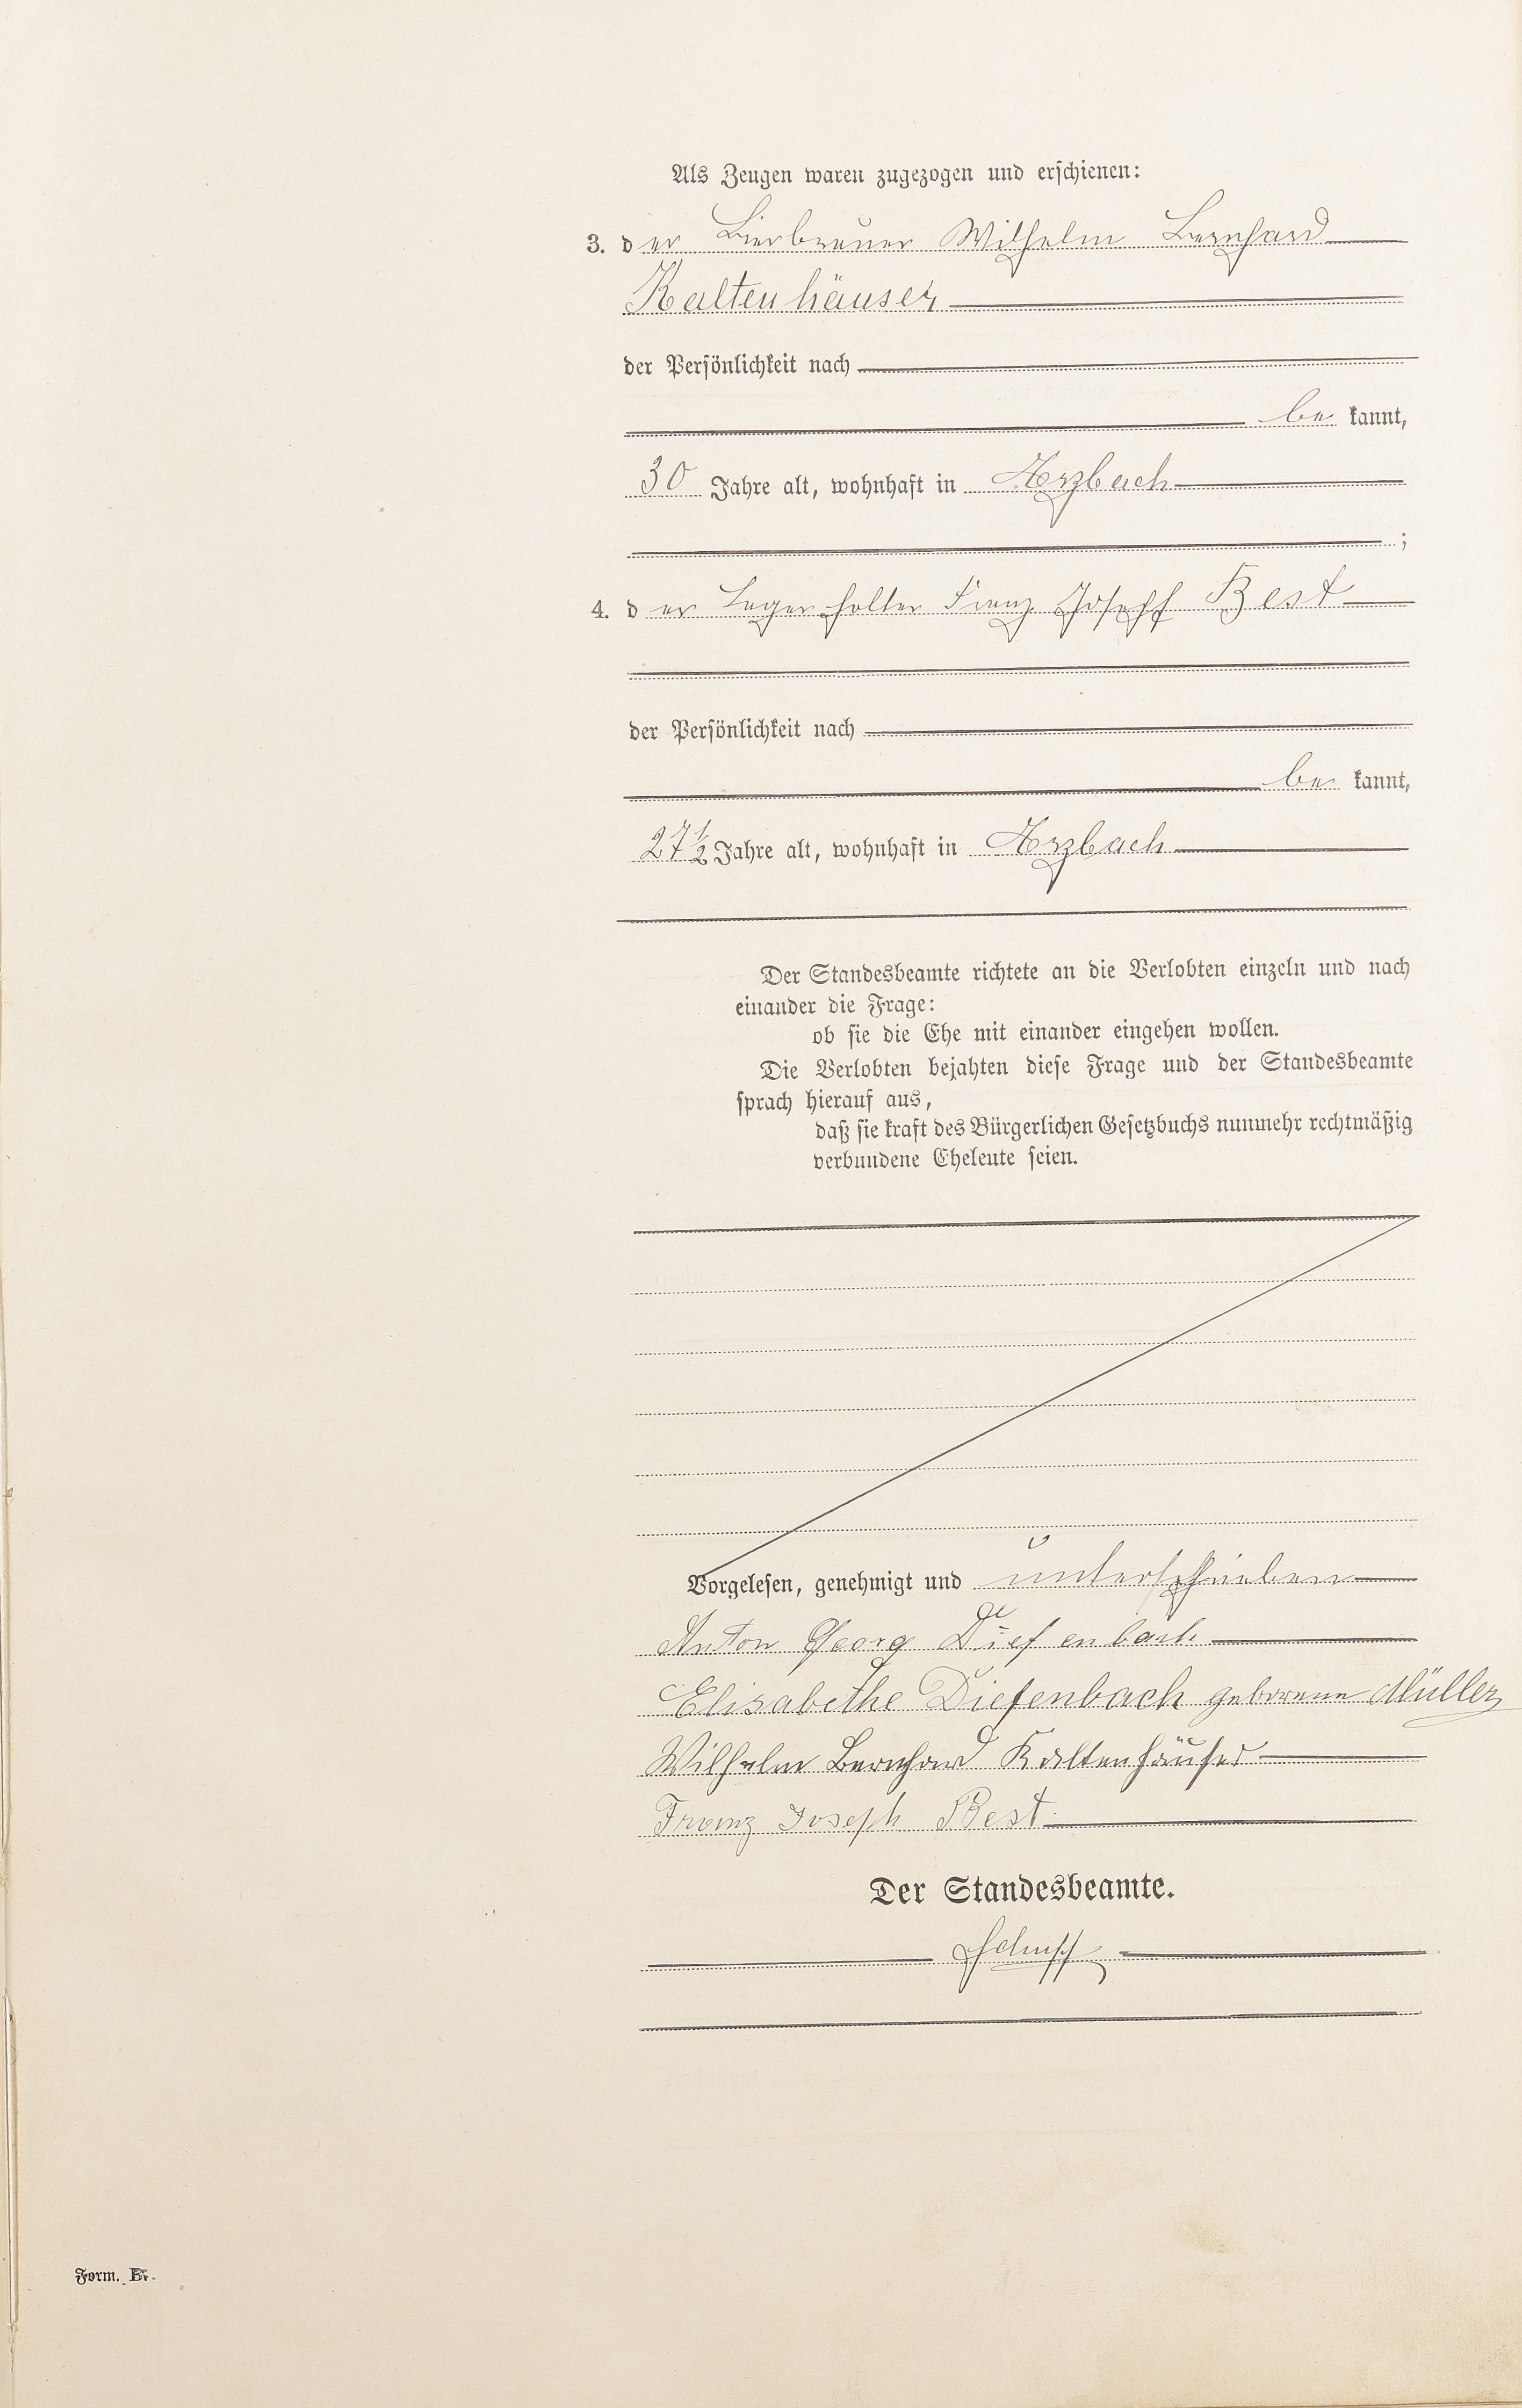 Als Zeugen waren zugezogen und erschienen:
3. der Bierbrauer Wilhelm Bernhard
Kaltenhäuser
der Persönlichkeit nach
be kannt,
30 Jahre alt, wohnhaft in Arzbach
;
4. der Lagerhalter Franz Joseph Best
der Persönlichkeit nach
be kannt,
27 1/2 Jahre alt, wohnhaft in Arzbach
Der Standesbeamte richtete an die Verlobten einzeln und nach
einander die Frage:
ob sie die Ehe mit einander eingehen wollen.
Die Verlobten bejahten diese Frage und der Standesbeamte
sprach hierauf aus,
daß sie kraft des Bürgerlichen Gesetzbuchs nunmehr rechtmäßig
verbundene Eheleute seien.
Vorgelesen, genehmigt und unterschrieben
Anton Georg Diefenbach
Elisabethe Diefenbach geborene Müller
Wilhelm Bernhard Kaltenhäuser
Franz Joseph Best
Der Standesbeamte.
Form. B.